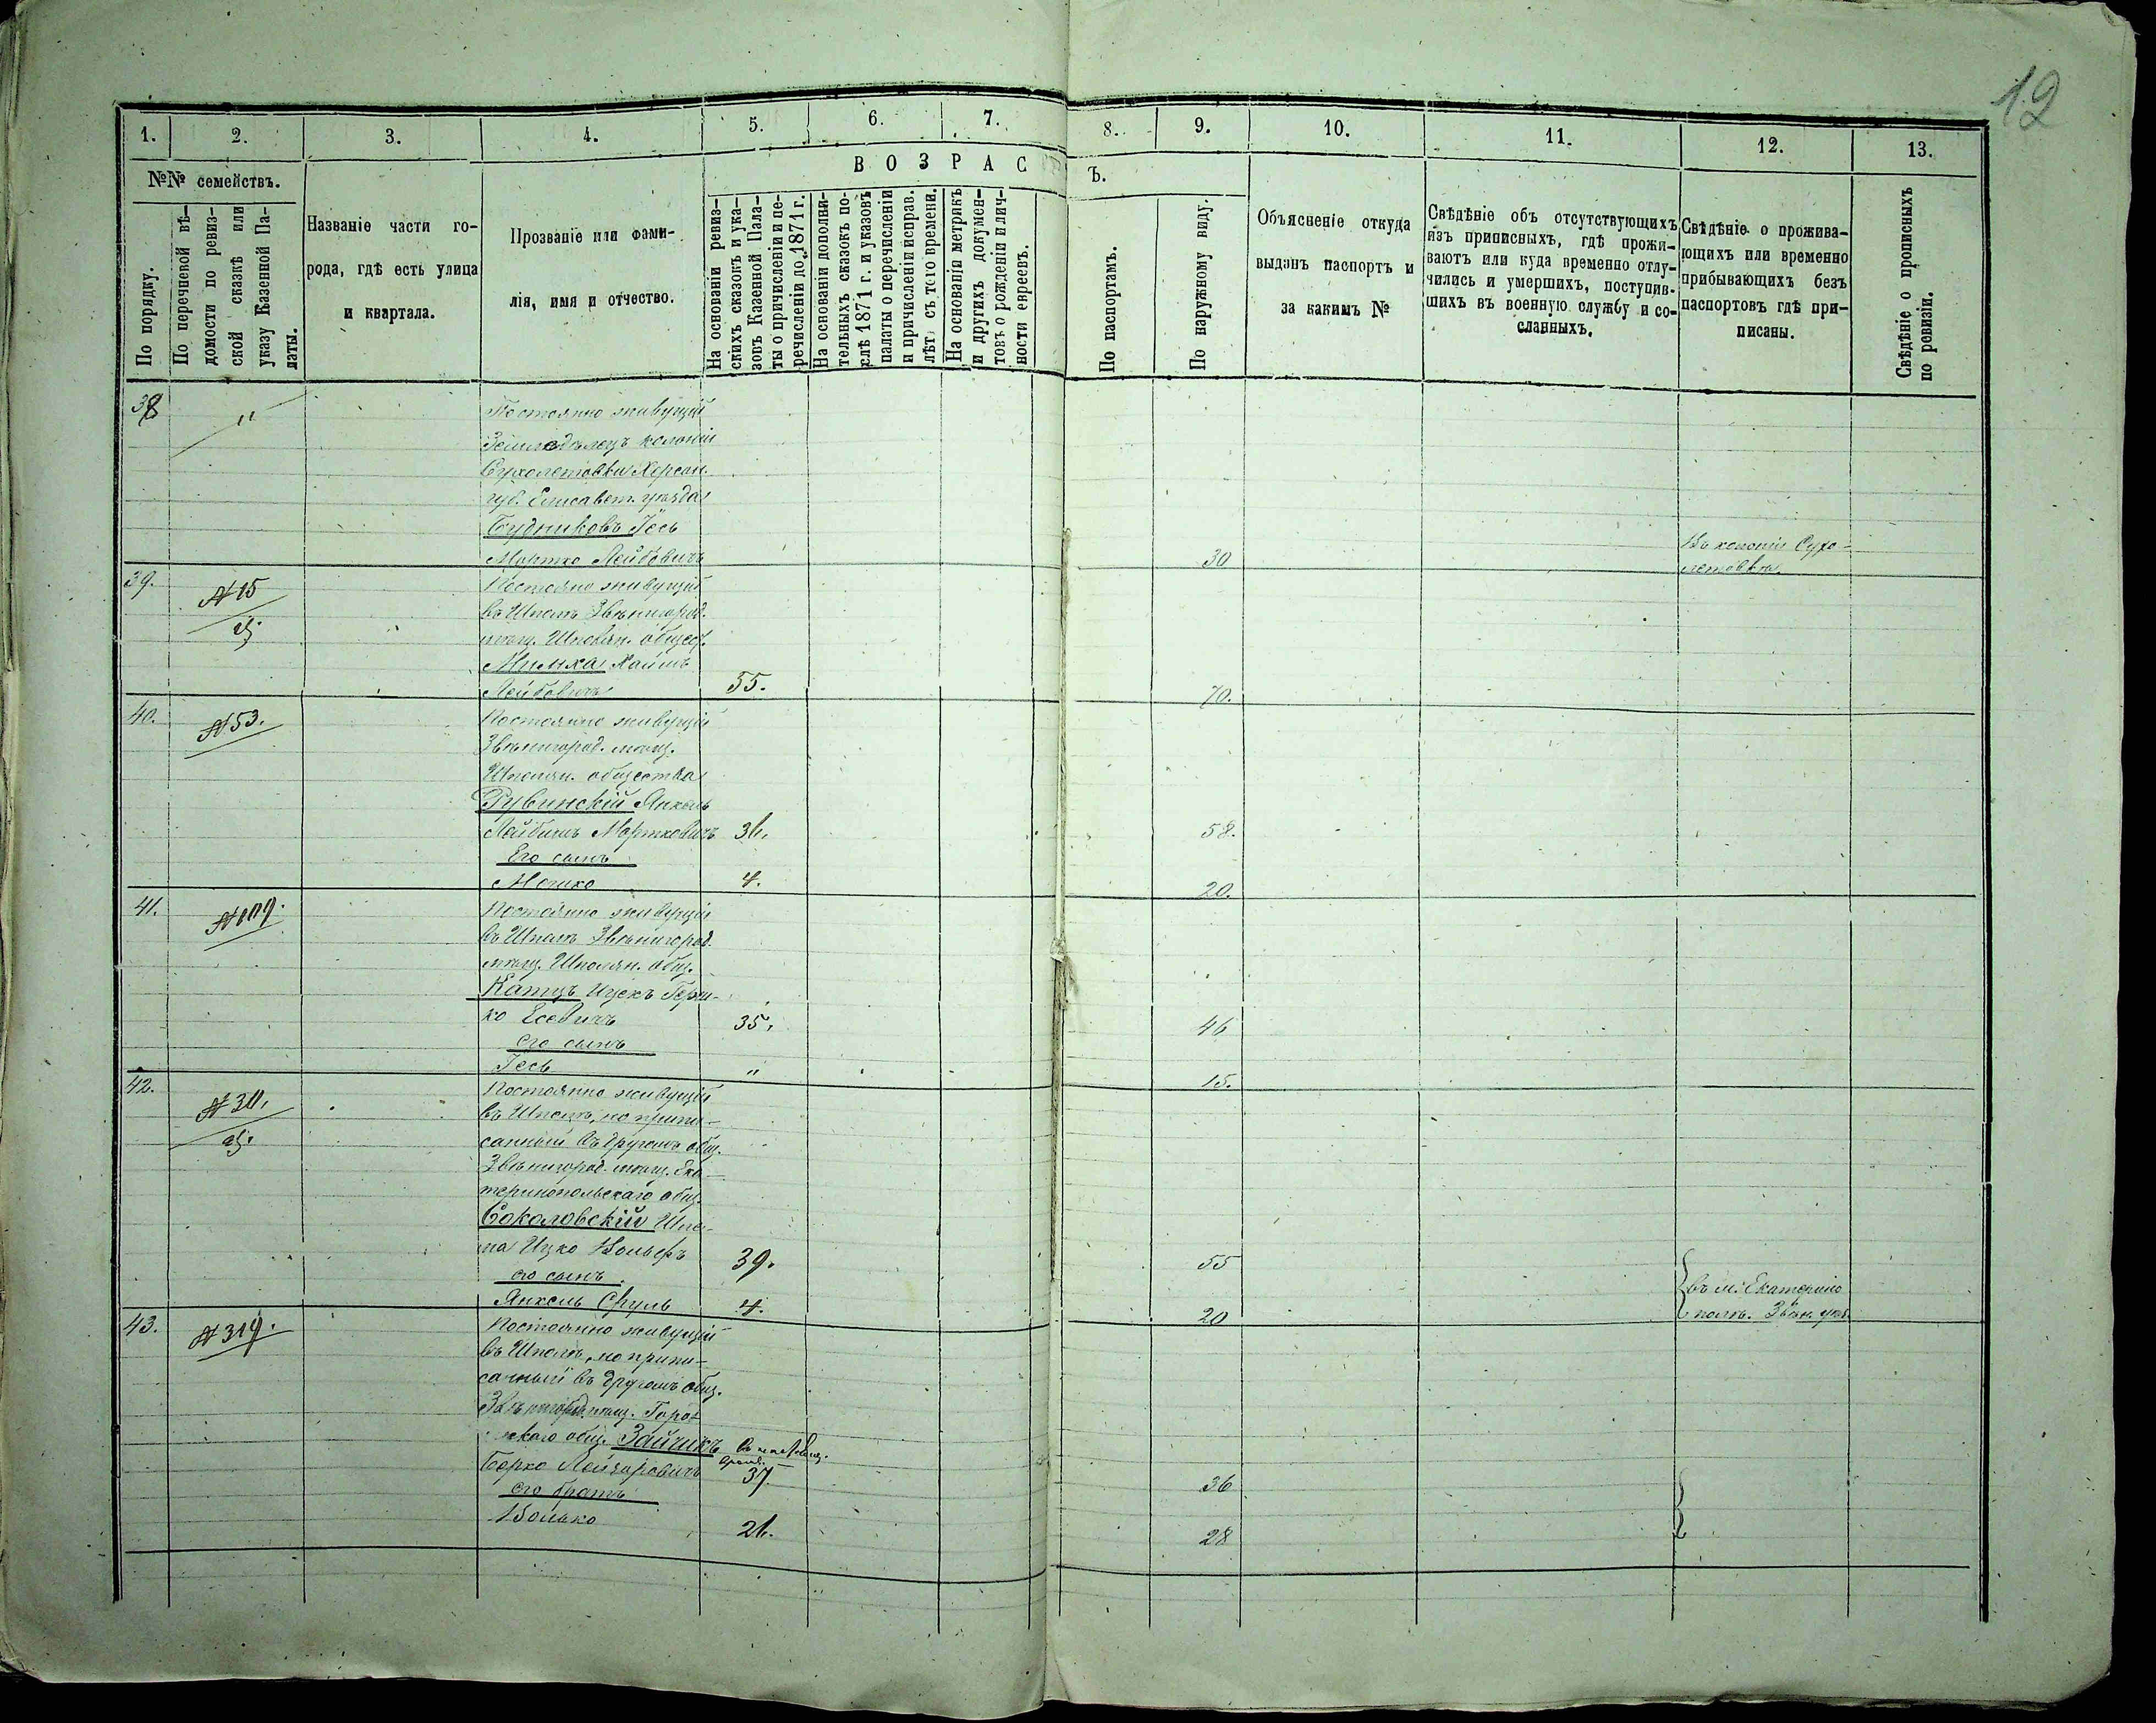 12
1. 2. 3. 4. 5. 6. 7. 8. 9. 10. 11. 12. 13.
№№ семействъ.
По порядку.
По перечневой вѣ-
домости по ревиз-
ской сказкѣ или
указу Казенной Па-
латы.
Названіе части го-
рода, гдѣ есть улица
и квартала.
Прозваніе или фами-
лія, имя и отчество.
ВОЗРАС
Ъ.
На основаніи ревиз-
скихъ сказокъ и ука-
зовъ Казенной Пала-
ты о причисленіи и пе-
речисленіи до 1871 г.
На основаніи дополни-
тельныхъ сказокъ по-
слѣ 1871 г. и указовъ
палаты о перечисленіи
и причисленіи исправ.
лѣт. съ того времени.
На основаніи метрикъ
и другихъ докумен-
товъ о рожденіи и лич-
ности евреевъ.
По паспортамъ.
По наружному виду.
Объясненіе откуда
выданъ паспортъ и
за какимъ №
Свѣдѣніе объ отсутствующихъ
изъ приписныхъ, гдѣ прожи-
ваютъ или куда временно отлу-
чились и умершихъ, поступив-
шихъ въ военную службу и со-
сланныхъ.
Свѣдѣніе о прожива-
ющихъ или временно
прибывающихъ безъ
паспортовъ гдѣ при-
писаны.
Свѣдѣніе о прописныхъ
по ревизіи.
38 " Постоянно живущій
Земледѣлецъ колоніи
Сухолетовки Херсон.
губ. Елисавет. уѣзда
Будниковъ Іось
Мортко Лейбовичъ 30 Въ колоніи Сухо-
летовкѣ.
39. №15 Постояно живущій
въ Шполѣ Звѣнигород.
мѣщ. Шполян. общес.
Хаимъ
Лейбовичъ 55. 70.
40. №53. Постоянно живущій
Звѣнигород. мѣщ.
Шполян. общества
Рувинскій Янкель
Лейбишъ Мортковичъ 36. 58.
Его сынъ
Мошко 4. 20.
41. №109. Постоянно живущій
въ Шполѣ Звѣнигород.
мѣщ. Шполян. общ.
Катцъ Ицекъ Герш-
ко Есевичъ 35. 46
его сынъ
Іесь " 15.
42. №311. Постоянно живущій
въ Шполѣ, но припи-
санный въ другомъ общ.
Звѣнигород. мѣщ. Ека-
теринопольскаго общ.
Соколовскій
Ицко Вольфъ 39. 55
его сынъ
Янкель Сруль 4. 20
въ м. Екатерино
полѣ. Звѣн. уѣз.
43. №319. Постоянно живущій
въ Шполѣ, но припи-
санный въ другомъ общ.
Звѣнигород. мѣщ.
общ. Зайчикъ
Берко Лейзаровичъ 37 36
его братъ
Волько 21. 28